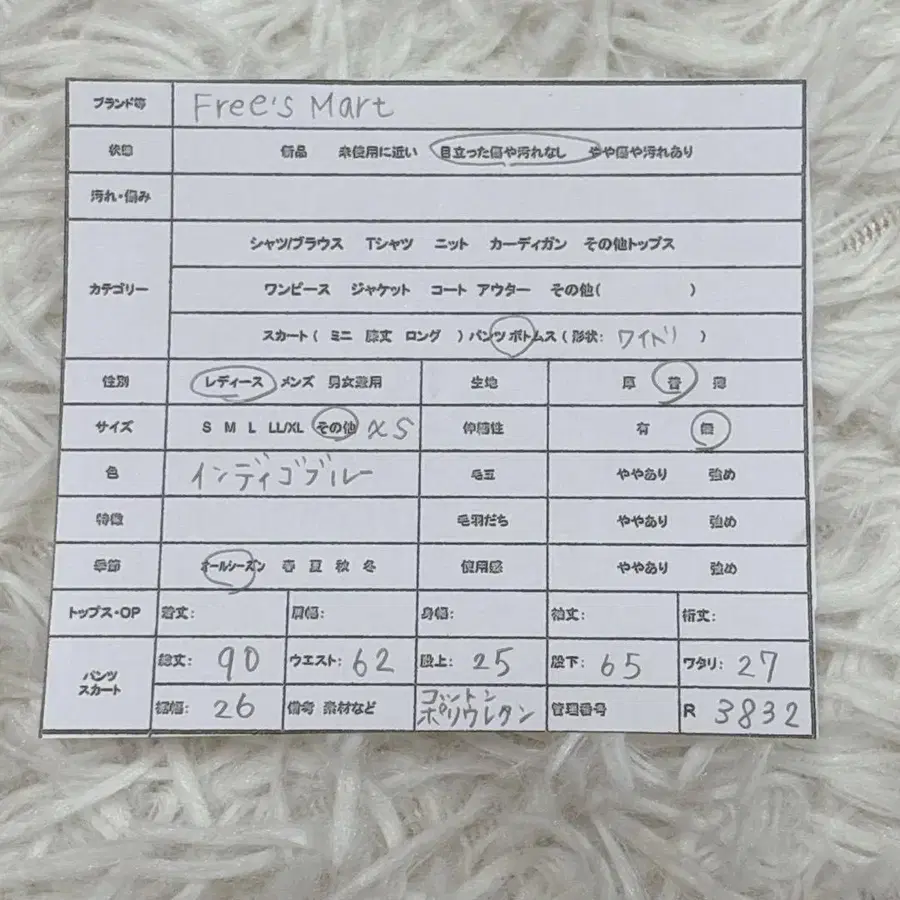 ブランド等 Free's Mart
状態 新品 未使用に近い 目立った傷や汚れなし やや傷や汚れあり
汚れ・傷み
カテゴリー
シャツ/ブラウス Tシャツ ニット カーディガン その他トップス
ワンピース ジャケット コート アウター その他( )
スカート( ミニ 膝丈 ロング ) パンツ ボトムス ( 形状: ワイド )
性別 レディース メンズ 男女兼用 生地 厚 普 薄
サイズ S M L LL/XL その他 XS 伸縮性 有 無
色 インディゴブルー 毛玉 ややあり 強め
特徴 毛羽だち ややあり 強め
季節 オールシーズン 春 夏 秋 冬 使用感 ややあり 強め
トップス・OP 着丈: 肩幅: 身幅: 袖丈: 裄丈:
パンツ スカート
総丈: 90 ウエスト: 62 股上: 25 股下: 65 ワタリ: 27
裾幅: 26 備考 素材など コットン ポリウレタン 管理番号 R 3832